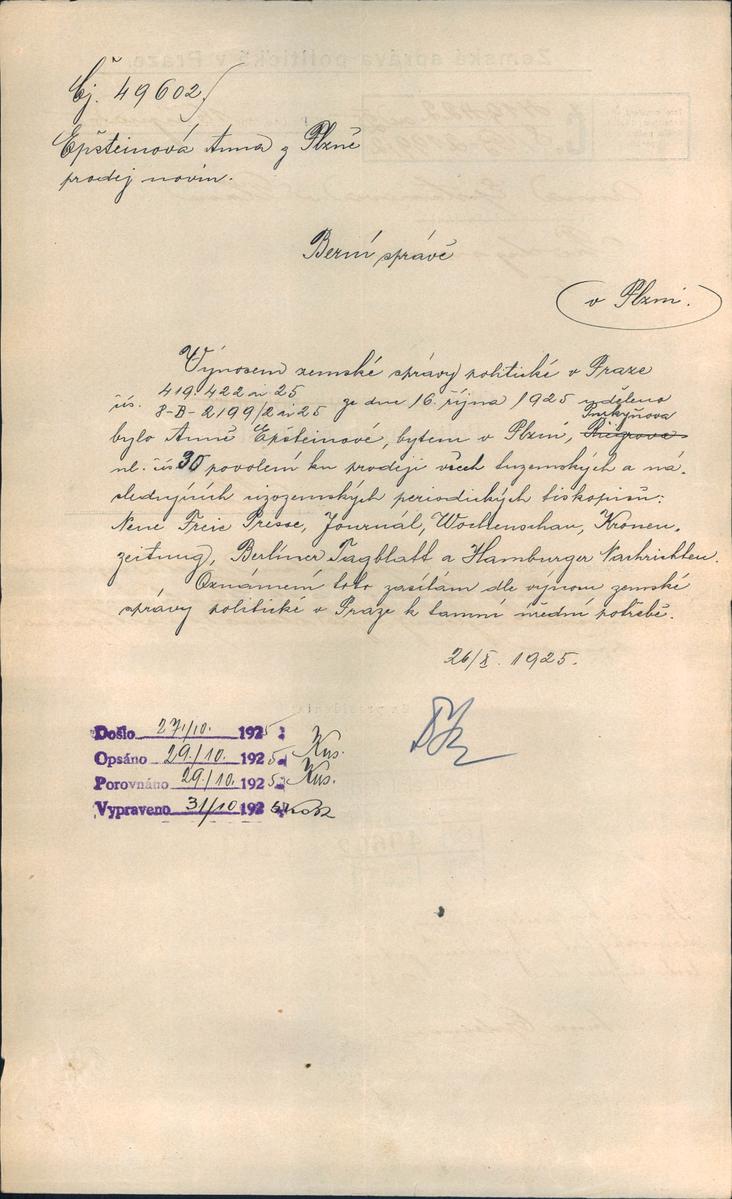 Čj. 49602/
Epsteinová Anna z Plzně
prodej novin.
Berní správě
v Plzni.
Výnosem zemské správy politické v Praze
419.422 ai 25
čís. 8-B-2199/2 ai 25 ze dne 16. října 1925 uděleno
Purkyňova
bylo Anně Epsteinové, bytem v Plzni, Riegrova
ul. čís 30 povolení ku prodeji všech tuzemských a ná-
sledujících cizozemských periodických tiskopisů:
Neue Freie Presse, Journál, Wochenschau, Kronen-
zeitung, Berliner Tagblatt a Hamburger Nachrichten.
Oznámení toto zasílám dle výnosu zemské
správy politické v Praze k tamní úřední potřebě.
26/X. 1925.
Došlo 27/10. 1925
Opsáno 29./10. 1925 Kus.
Porovnáno 29/10. 1925 Kus.
Vypraveno 31/10 192